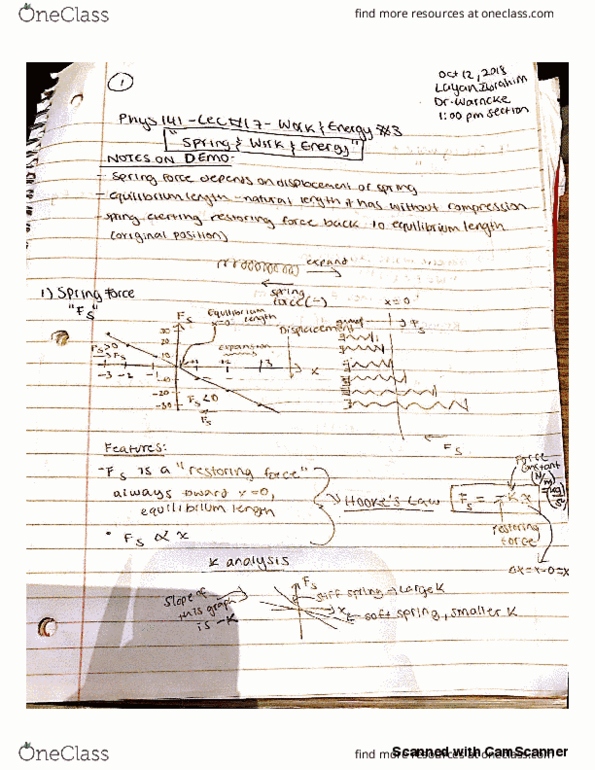 OneClass
find more resources at oneclass.com
1
Oct 12, 2018
Layan Ibrahim
Dr. Warncke
1:00 pm section
Phys 141 - Lec #17 - Work & Energy 3
"Spring & Work & Energy"
NOTES ON DEMO-
- spring force depends on displacement of spring
- equilibrium length - natural length it has without compression
- spring exerting restoring force back to equilibrium length
(original position)
expand
spring
force (-)
x=0
1) Spring force
"Fs"
Fs
Equilibrium
length
x=0
Displacement
expansion
Fs>0
→Fs
30
20
10
-3 -2 -1
+1 +2 3
x
-10
-20
-30
Fs<0
Fs
→ Fs
← Fs
Features:
- Fs is a "restoring force"
always toward x=0,
equilibrium length
Hooke's Law
Fs = -Kx
Force
constant
(N/m)
restoring
force
Δx=x-0=x
• Fs ∝ x
K analysis
Slope of
this graph
is -K
Fs
stiff spring → large K
x
soft spring, smaller K
OneClass
find more resources at oneclass.com
Scanned with CamScanner